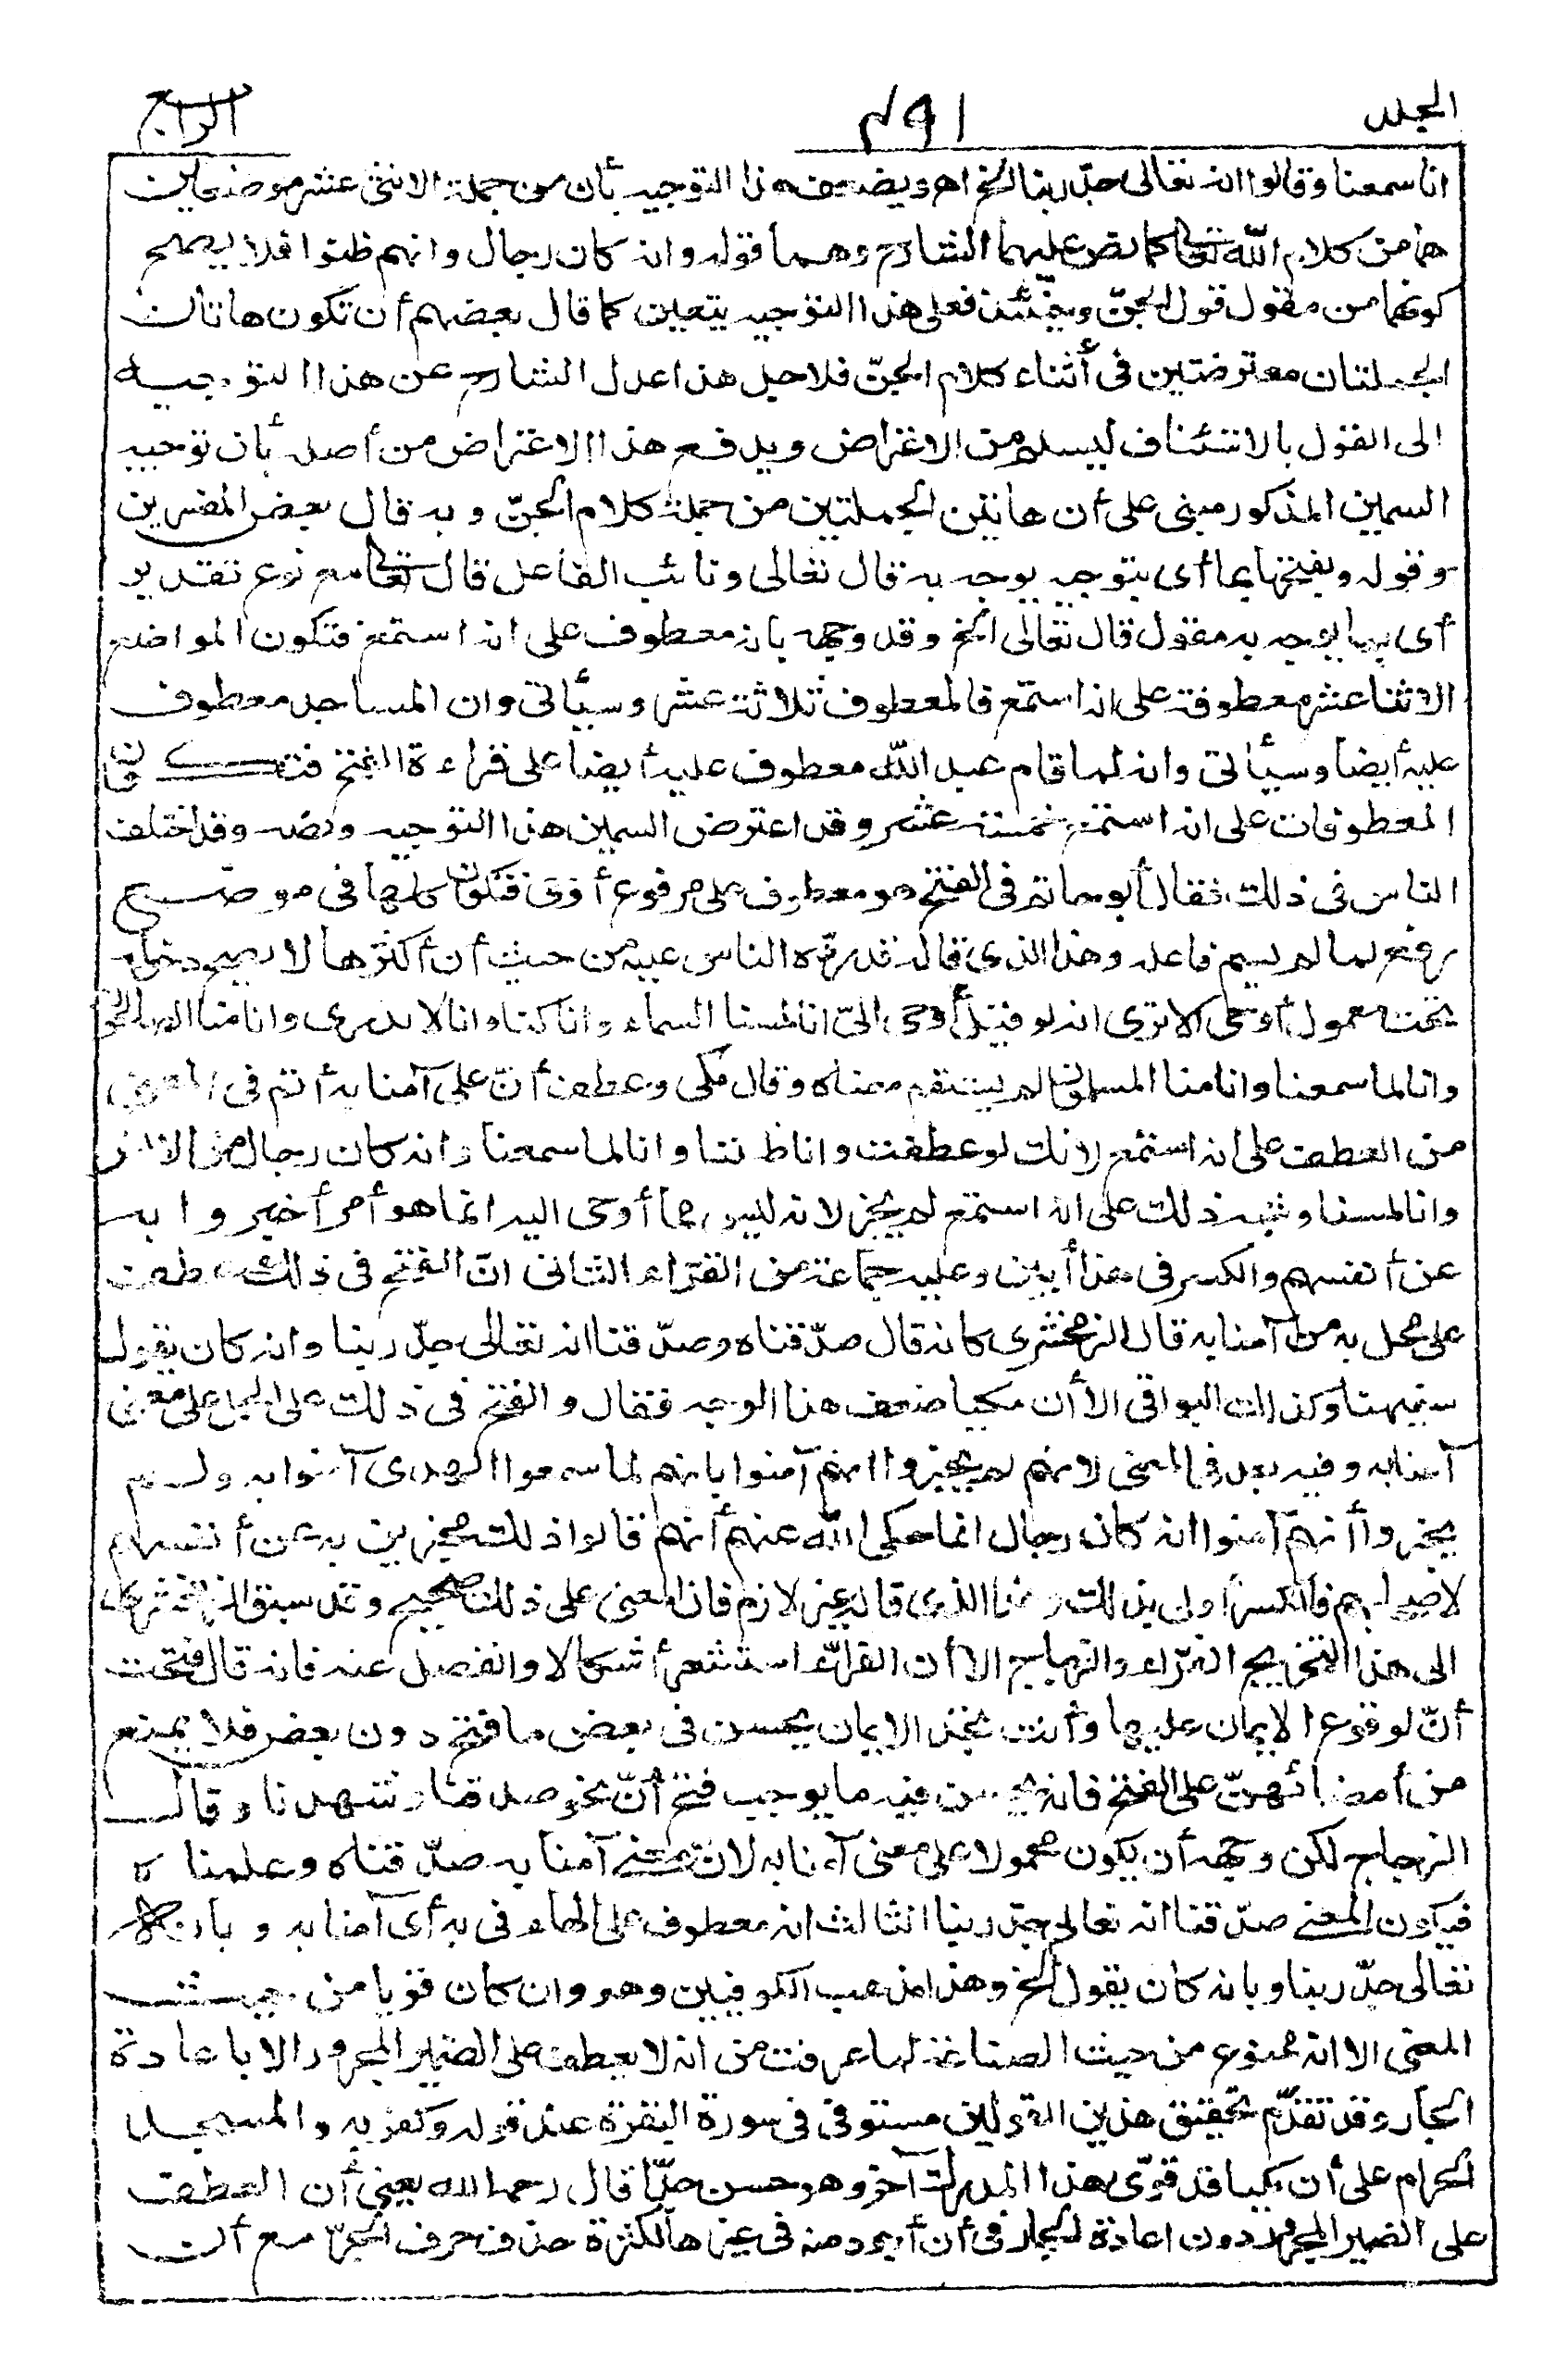 المجلد ٤٩١ الرابع
انا سمعنا وقالوا انه تعالى جدّ ربنا الخ اهـ ويضعف هذا التوجيه بأن من جملة الاثنى عشر موضعين
هما من كلام الله تعالى كما نص عليهما الشارح وهما قوله وانه كان رجال وانهم ظنوا فلا يصح
كونهما من مقول قول الجنّ وحينئذ فعلى هذا التوجيه يتعين كما قال بعضهم أن تكون هاتان
الجملتان معترضتين فى أثناء كلام الجنّ فلاجل هذا عدل الشارح عن هذا التوجيه
الى القول بالاستئناف ليسلم من الاعتراض ويدفع هذا الاعتراض من أصله بأن توجيه
السمين المذكور مبنى على أن هاتين الجملتين من جملة كلام الجنّ وبه قال بعض المفسرين
وقوله وبفتحها بما أى بتوجيه يوجه به قال تعالى ونائب الفاعل قال تعالى مع نوع تقدير
أى بما يوجه به مقول قال تعالى الخ وقد وجهه بانه معطوف على انه استمع فتكون المواضع
الاثنا عشر معطوفة على انه استمع فالمعطوف ثلاثة عشر وسيأتى وان المساجد معطوف
عليه أيضا وسيأتى وانه لما قام عبد الله معطوف عليه أيضا على قراءة الفتح فتكون
المعطوفات على انه استمع خمسة عشر وقد اعترض السمين هذا التوجيه ونصه وقد اختلف
الناس فى ذلك فقال أبو حاتم فى الفتح هو معطوف على مرفوع أوحى فتكون كلها فى موضع
رفع لما لم يسم فاعله وهذا الذى قاله قد رده الناس عليه من حيث أن أكثرها لا يصح دخوله
تحت معمول أوحى الا ترى انه لو قيل أوحى الىّ انا لمسنا السماء وانا كنا وانا لا ندرى وانا منا الصالحون
وانا لما سمعنا وانا منا المسلمون لم يستقم معناه وقال مكى وعطف أنّ على آمنا به أتم فى المعنى
من العطف على انه استمع لانك لو عطفت وانا ظننا وانا لما سمعنا وانه كان رجال من الانس
وانا لمسنا وشبه ذلك على انه استمع لم يجز لانه ليس مما أوحى اليه انما هو أمر أخبروا به
عن أنفسهم والكسر فى هذا أبين وعليه جماعة من القراء الثانى انّ الفتح فى ذلك عطف
على محل به من آمنا به قال الزمخشرى كانه قال صدّقناه وصدّقنا انه تعالى جدّ ربنا وانه كان يقول
سفيهنا وكذلك البواقى الا أن مكيا ضعف هذا الوجه فقال والفتح فى ذلك على الحمل على معنى
آمنا به وفيه بعد فى المعنى لانهم لم يخبروا انهم آمنوا بانهم لما سمعوا الهدى آمنوا به ولم
يخبروا أنهم آمنوا انه كان رجال انما حكى الله عنهم أنهم قالوا ذلك مخبرين به عن أنفسهم
لاصحابهم فالكسر أولى بذلك وهذا الذى قاله غير لازم فان المعنى على ذلك صحيح وقد سبق الزمخشرى
الى هذا التخريج الفرّاء والزجاج الا أن الفراّء استشعر أشكالا وانفصل عنه فانه قال فتحت
أنّ لوقوع الايمان عليها وأنت تجد الايمان يحسن فى بعض ما فتح دون بعض فلا يمنع
من امضائهنّ على الفتح فانه يحسن فيه ما يوجب فتح أنّ نحو صدقنا وشهدنا وقال
الزجاج لكن وجهه أن يكون محمولا على معنى آمنا به لانّ معنى آمنا به صدّقناه وعلمناه
فيكون المعنى صدّقنا انه تعالى جدّ ربنا الثالث انه معطوف على الهاء فى به أى آمنا به وبأنه
تعالى جدّ ربنا وبانه كان يقول الخ وهذا مذهب الكوفيين وهو وان كان قويا من حيث
المعنى الا انه ممنوع من حيث الصناعة لما عرفت من انه لا يعطف على الضمير المجرور الا باعادة
الجار وقد تقدّم تحقيق هذين القولين مستوفى فى سورة البقرة عند قوله وكفر به والمسجد
الحرام على أن مكيا قد قوّى هذا المدرك آخر وهو حسن جدّا قال رحمه الله يعنى أن العطف
على الضمير المجرور دون اعادة الجار فى أن أجود منه فى غيرها لكثرة حذف حرف الجرّ مع أن